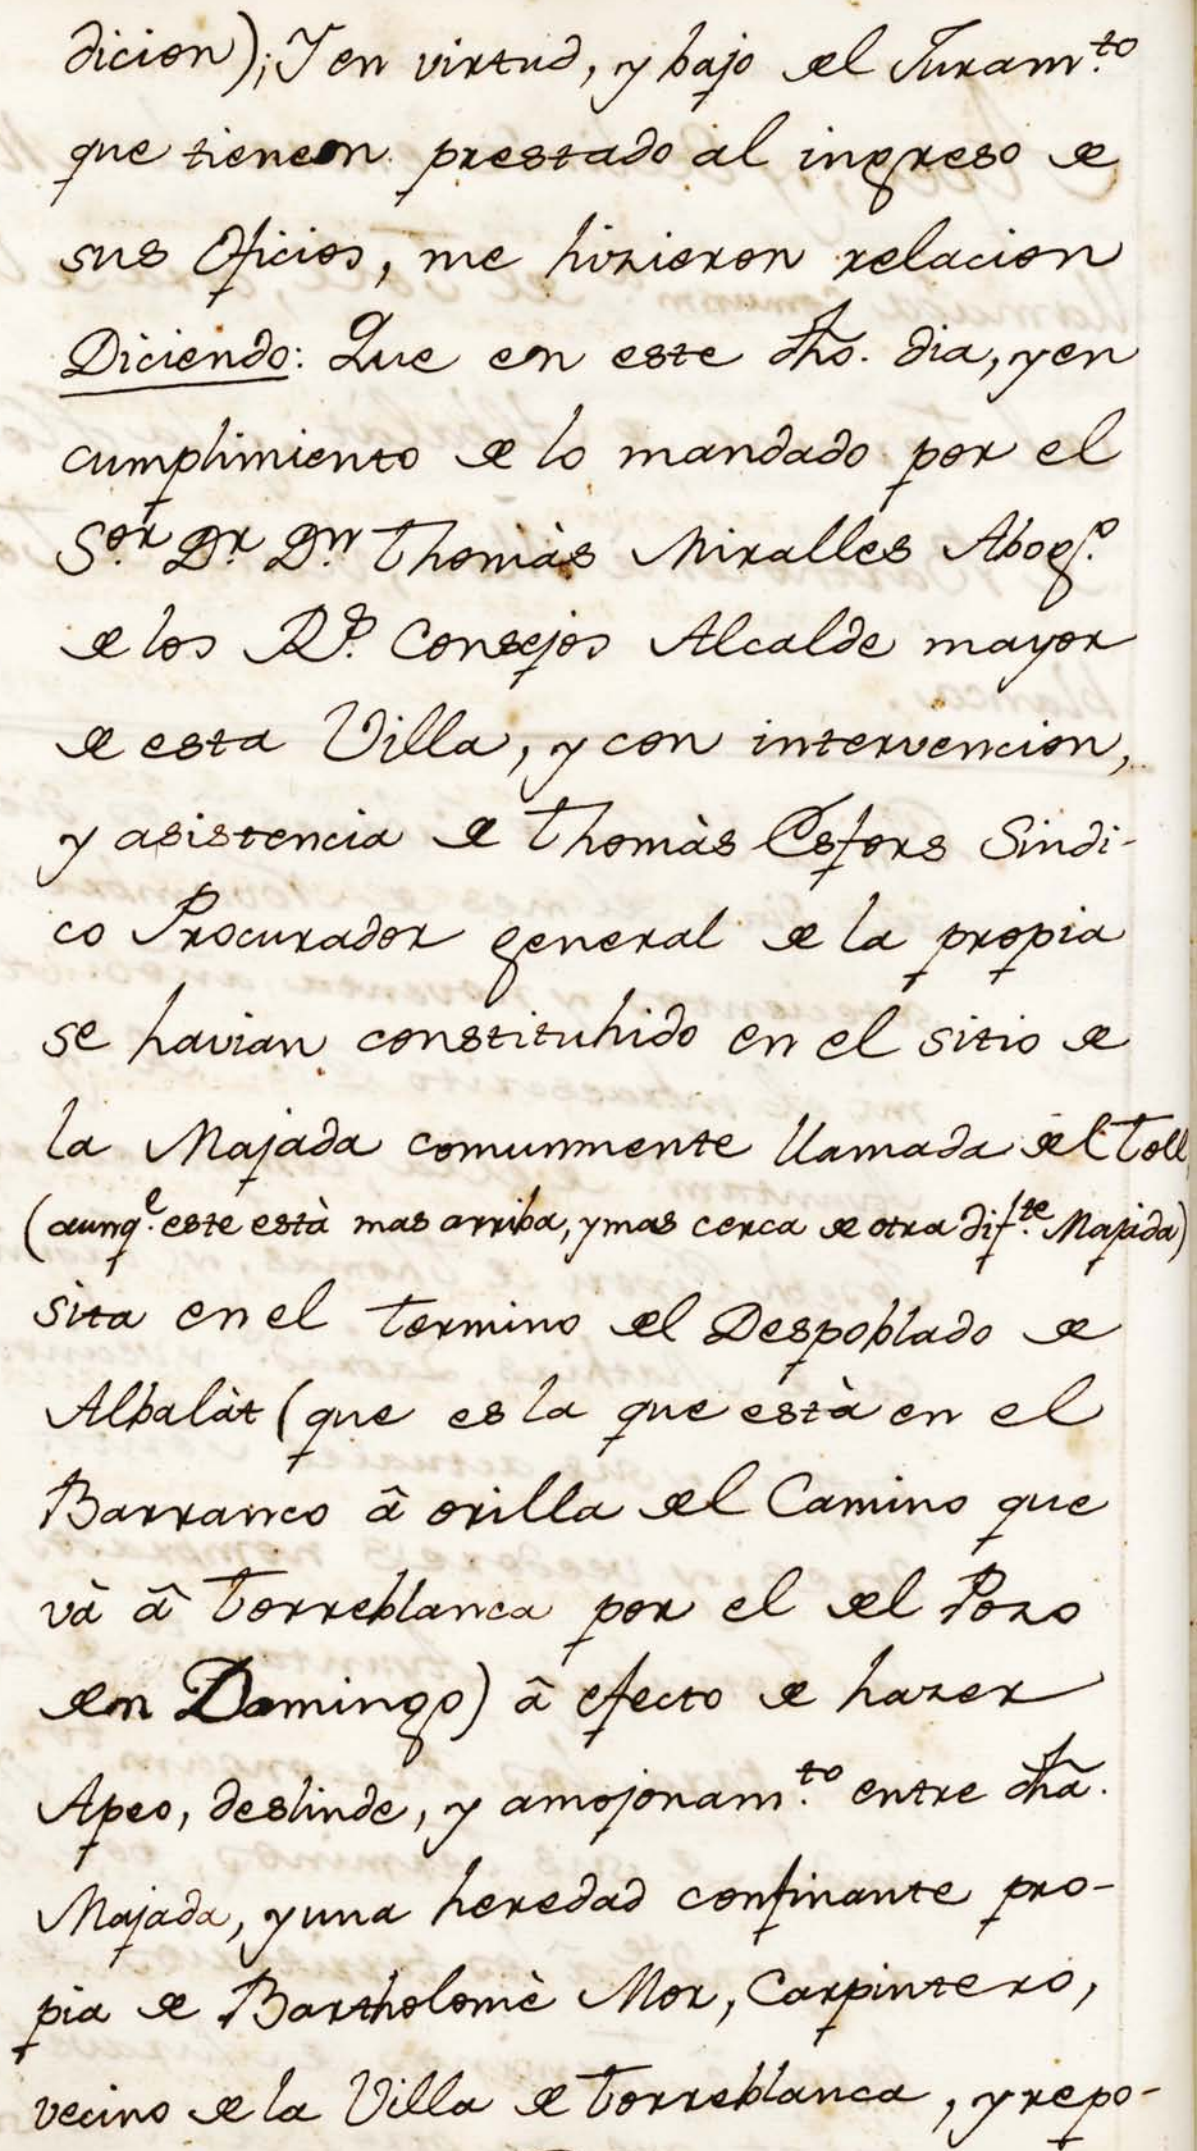 dicion); Y en virtud, y bajo el Juram.to
que tienen prestado al ingreso de
sus Oficios, me hizieron relacion
Diciendo: Que en este dho. dia, y en
cumplimiento de lo mandado por el
S.or D.r D.n Thomàs Miralles Abog.o
de los R.s Consejos Alcalde mayor
de esta Villa, y con intervencion,
y asistencia de Thomàs Esfors Sindi-
co Procurador general de la propia
se havian constituhido en el sitio de
la Majada comunmente llamada del Toll
(aunq.e este està mas arriba, y mas cerca de otra dif.te Majada)
sita en el termino del Despoblado de
Albalàt (que es la que està en el
Barranco â orilla del Camino que
và â Torreblanca por el del Pozo
den Domingo) â efecto de hazer
Apeo, deslinde, y amojonam.to entre dha.
Majada, y una heredad confinante pro-
pia de Bartholomè Mor, Carpintero,
vecino de la Villa de Torreblanca, y repo-